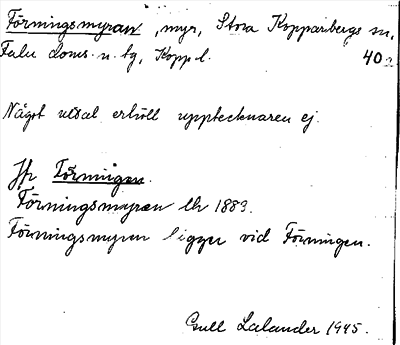 Förningsmyran, myr, Stora Kopparbergs sn,
Falu doms. o. tg, Kopp. l. 40
Något uttal erhöll upptecknaren ej.
Jfr Förningen.
Förningsmyran Lk 1883.
Förningsmyren ligger vid Förningen.
Gull Lalander 1945.